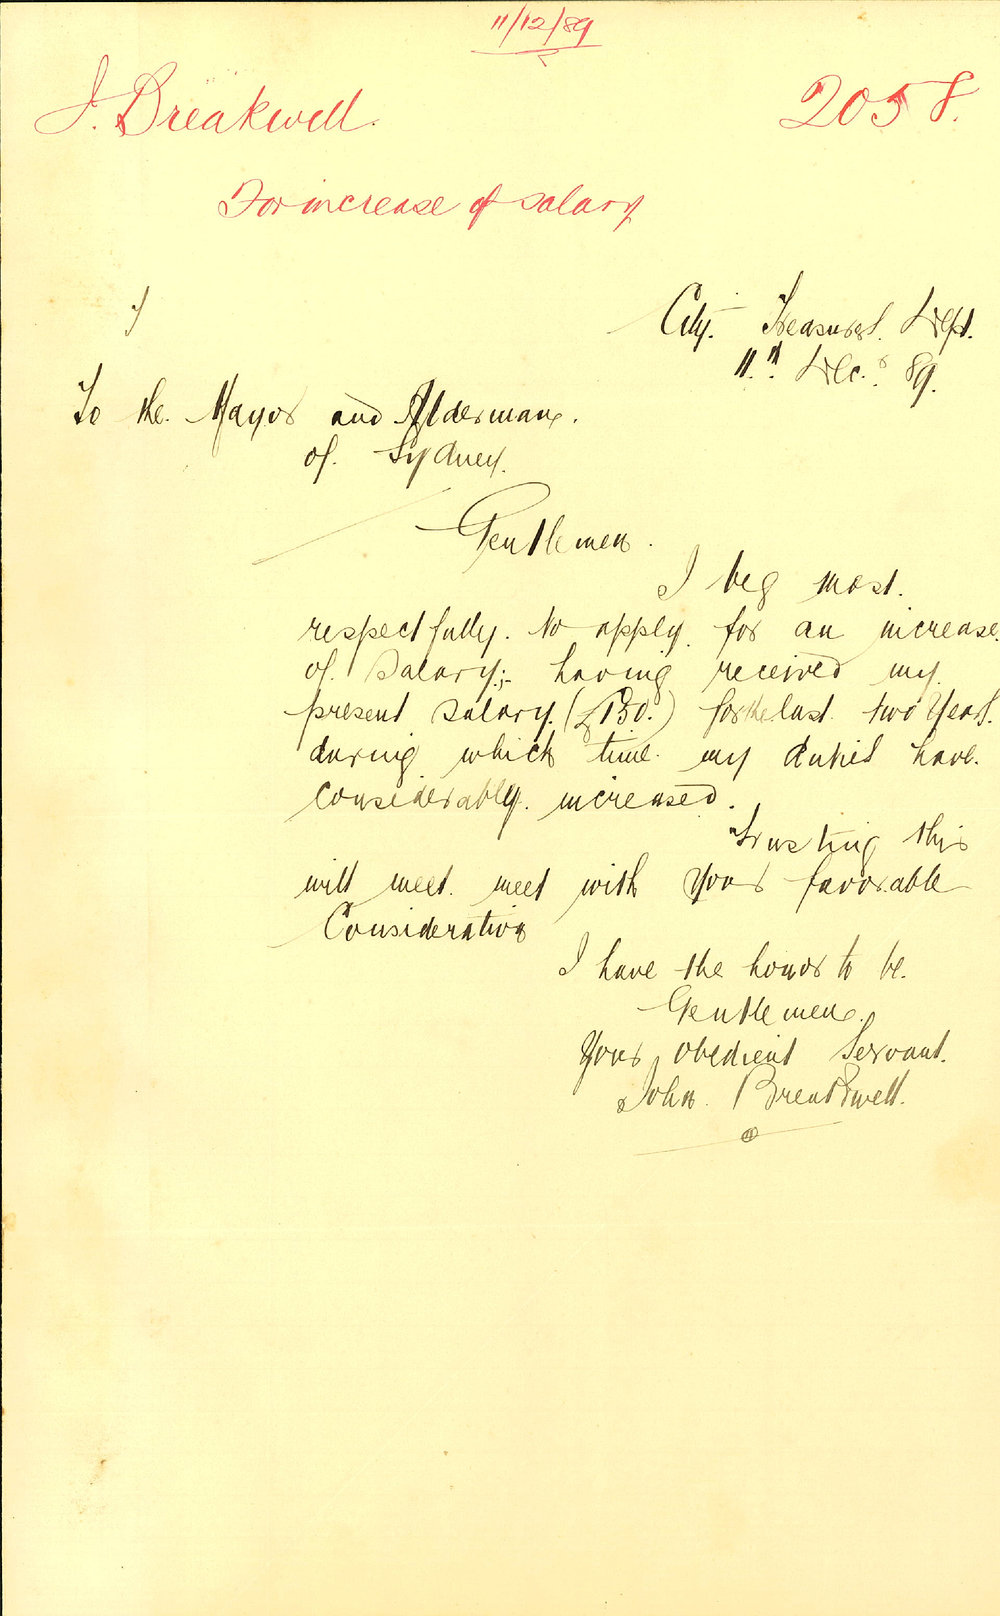 11/12/89
J. Breakwell.
2058.
For increase of salary
City. Treasurers. Dept.
11.th Dec.r 89.
To the. Mayor and Aldermane.
of. Sydney.
Gentlemen.
I beg most.
respectfully. to apply. for an increase.
of. Salary;- having received my.
present salary. (£150.) for the last. two Years.
during which time. my duties have.
considerably. increased.
Trusting this
will meet. meet with Your favorable
Consideration
I have the honor to be.
Gentlemen.
Your obedient Servant.
John. Breakwell.